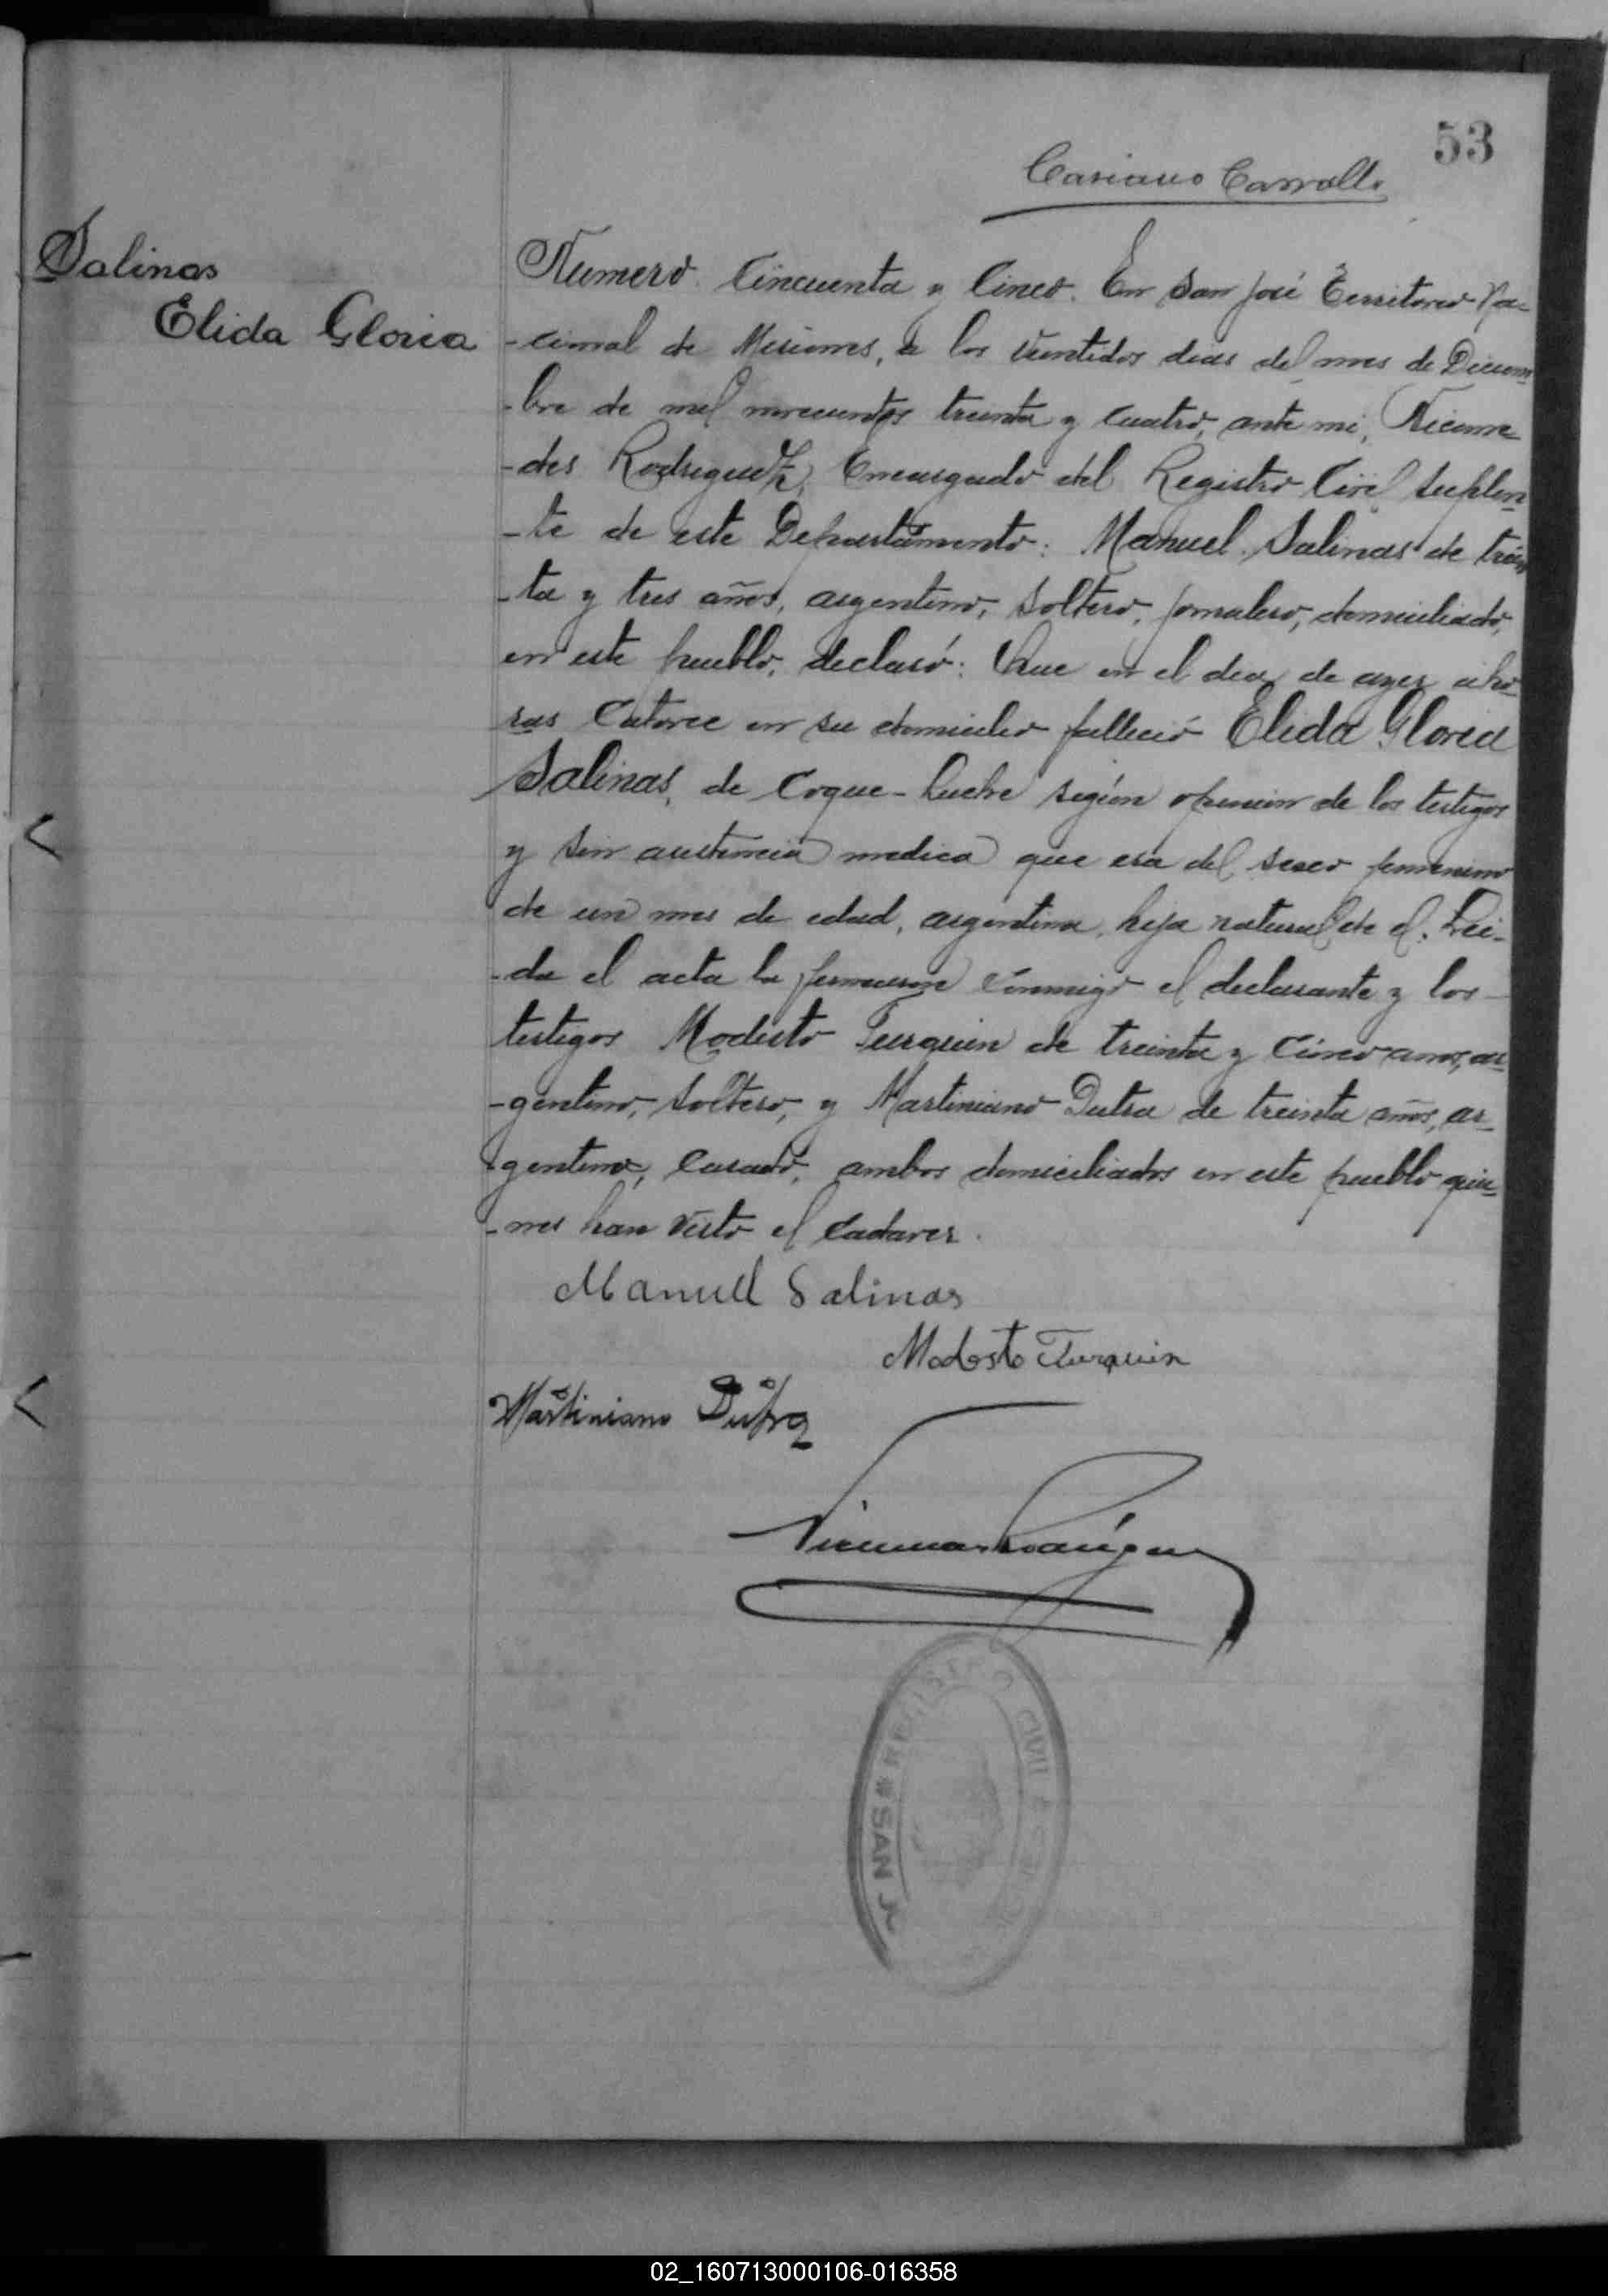 53
Casiano Carvallo
Salinas
Elida Gloria
Numero Cincuenta y Cinco. En San José Territorio Na-
-cional de Misiones, a los veintidos dias del mes de Diciem
-bre de mil novecientos treinta y cuatro, ante mi, Nicome
-des Rodriguez, Encargado del Registro Civil Suplen
-te de este Departamento: Manuel Salinas de trein
-ta y tres años, argentino, soltero, jornalero, domiciliado,
en este pueblo, declaró: Que en el dia de ayer a ho-
ras Catorce en su domicilio falleció Elida Gloria
Salinas, de Coque-luche según opinion de los testigos
y sin asistencia medica que era del sexo femenino
de un mes de edad, argentina, hija natural de el. Lei-
-da el acta la firmaron conmigo el declarante y los
testigos Modesto Turquin de treinta y Cinco años, ar-
-gentino, soltero, y Martiniano Dutra de treinta años, ar-
gentino, Casado, ambos domiciliados en este pueblo quie-
-nes han visto el Cadaver.
Manuel Salinas
Modesto Turquin
Martiniano Dutra
REGISTRO CIVIL
SAN J
02_160713000106-016358